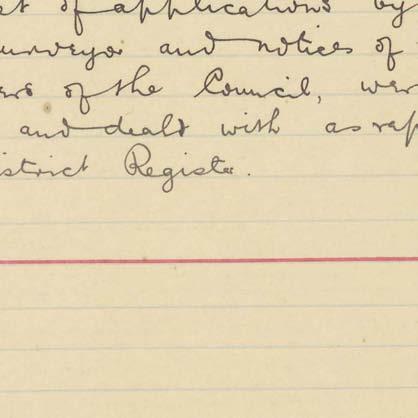 of applications by
surveyor and notices of
ers of the Council, wer
and dealt with as rep
istrict Register.